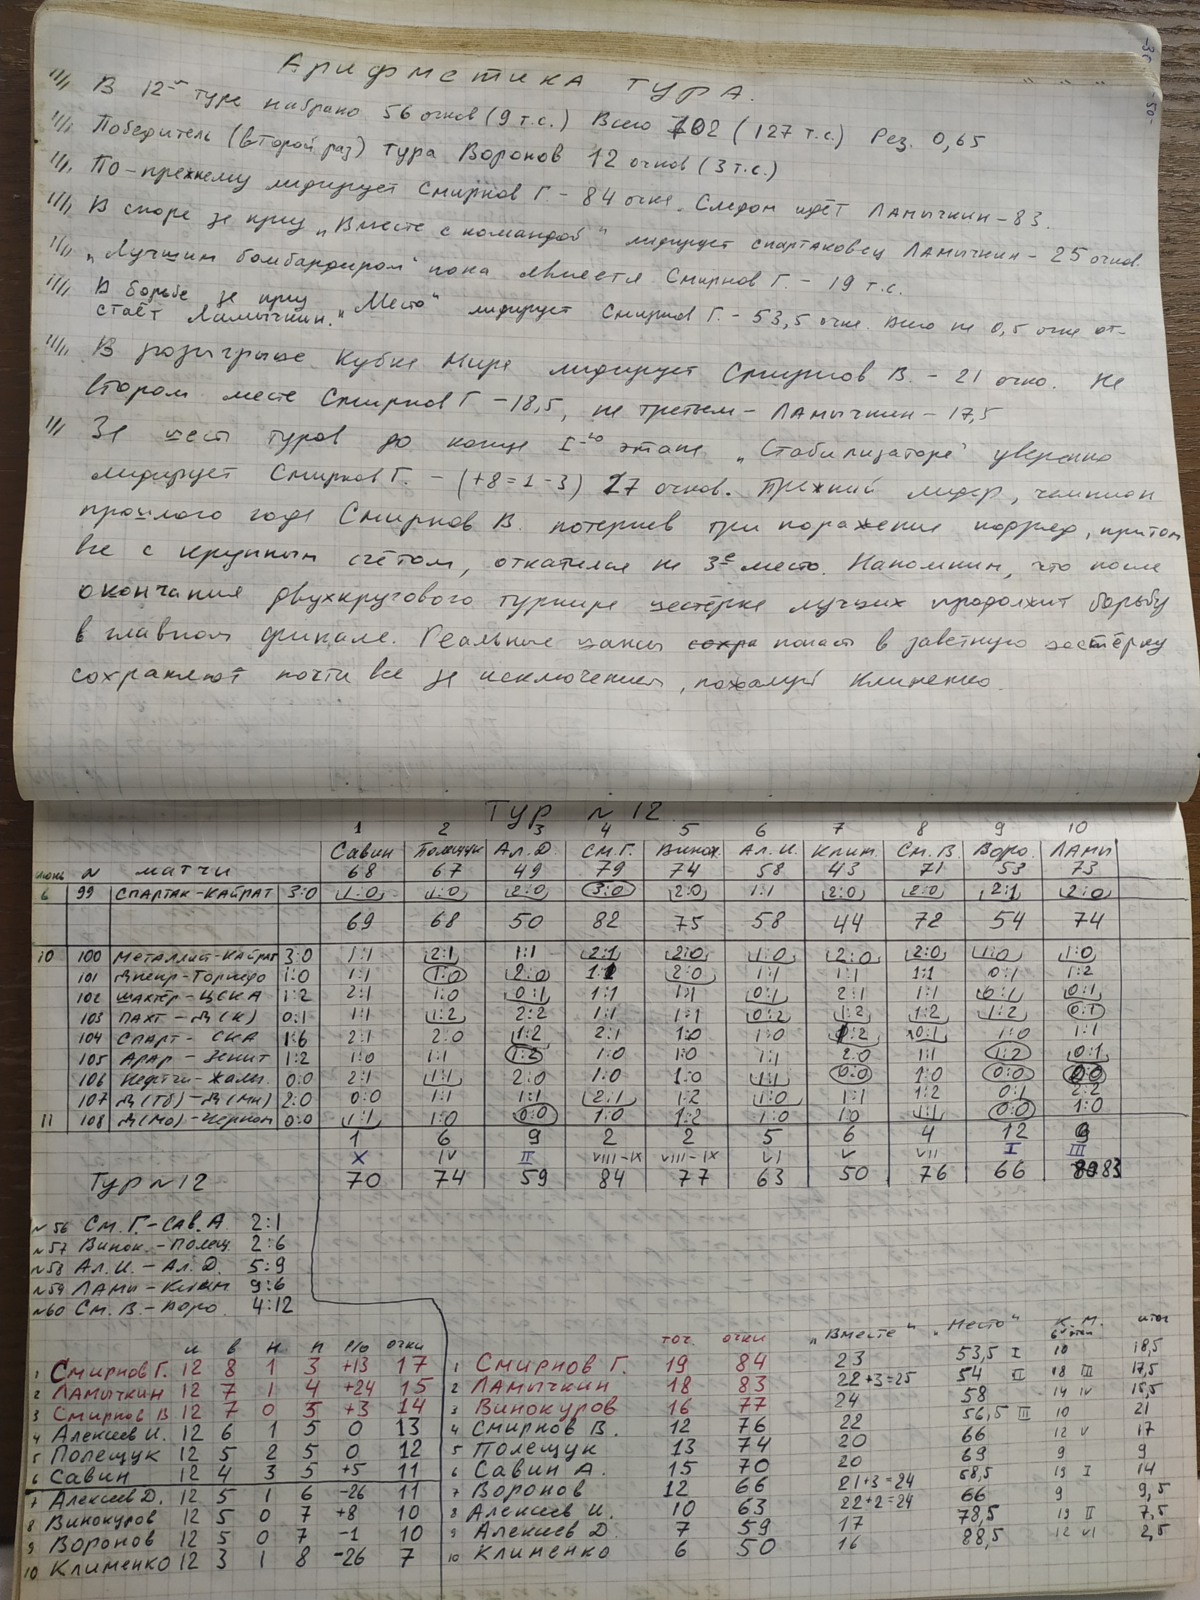 Арифметика тура.
В 12-м туре набрано 56 очков (9 т.с.) Всего 702 (127 т.с.) Рез. 0,65
Победитель (второй раз) тура Воронов 12 очков (3 т.с.)
По-прежнему лидирует Смирнов Г. - 84 очка. Следом идёт Ламычкин - 83.
В споре за приз „Вместе с командой" лидирует спартаковец Ламычкин - 25 очков.
„Лучшим бомбардиром" пока является Смирнов Г. - 19 т.с.
В борьбе за приз „Место" лидирует Смирнов Г. - 53,5 очка. Всего на 0,5 очка от-
стаёт Ламычкин.
В розыгрыше Кубка Мира лидирует Смирнов В. - 21 очко. На
втором месте Смирнов Г - 18,5, на третьем - Ламычкин - 17,5
За шест туров до конца I-го этапа „Стабилизатора" уверенно
лидирует Смирнов Г. - (+8=1-3) 17 очков. Прежний лидер, чемпион
прошлого года Смирнов В. потерпев три поражения подряд, притом
все с крупным счётом, откатился на 3е место. Напомним, что после
окончания двухкругового турнира шестёрка лучших продолжит борьбу
в главном финале. Реальные шансы попаст в заветную шестёрку
сохраняют почти все за исключением, пожалуй Клименко.
Тур №12
1 2 3 4 5 6 7 8 9 10
Савин Полещук Ал.Д. См.Г. Винок. Ал.И. Клим. См.В. Воро. Ламы
июнь № матчи 68 67 49 79 74 58 43 71 53 73
6 99 Спартак-Кайрат 3:0 1:0 1:0 2:0 3:0 2:0 1:1 2:0 2:0 2:1 2:0
69 68 50 82 75 58 44 72 54 74
10 100 Металлист-Кайрат 3:0 1:1 2:1 1:1 2:1 2:0 1:0 2:0 2:0 1:0 1:0
101 Днепр-Торпедо 1:0 1:1 1:0 2:0 1:1 2:0 1:1 1:1 1:1 0:1 1:2
102 Шахтёр-ЦСКА 1:2 2:1 1:0 0:1 1:1 1:1 0:1 2:1 1:1 0:1 0:1
103 Пахт-Д(К) 0:1 1:1 1:2 2:2 1:1 1:1 0:2 1:2 1:2 1:2 0:1
104 Спарт-СКА 1:6 2:1 2:0 1:2 2:1 1:0 1:0 0:2 0:1 1:0 1:1
105 Арар-Зенит 1:2 1:0 1:1 1:2 1:0 1:0 1:1 2:0 1:1 1:2 0:1
106 Нефтчи-Жаль. 0:0 2:1 1:1 2:0 1:0 1:0 1:1 0:0 1:0 0:0 0:0
107 Д(Тб)-Д(Мн) 2:0 0:0 1:1 1:1 2:1 1:2 1:0 1:1 1:2 0:1 2:2
11 108 Д(Мо)-Черном 0:0 1:1 1:0 0:0 1:0 1:2 1:0 1:0 1:1 0:0 1:0
1 6 9 2 2 5 6 4 12 9
X IV II VIII-IX VIII-IX VI V VII I III
Тур №12 70 74 59 84 77 63 50 76 66 83
№56 См.Г.-Сав.А. 2:1
№57 Винок.-Полещ. 2:6
№58 Ал.И.-Ал.Д. 5:9
№59 Ламы-Клим 9:6
№60 См.В.-Воро. 4:12
и в н п р/о очки
1 Смирнов Г. 12 8 1 3 +13 17
2 Ламычкин 12 7 1 4 +24 15
3 Смирнов В 12 7 0 5 +3 14
4 Алексеев И. 12 6 1 5 0 13
5 Полещук 12 5 2 5 0 12
6 Савин 12 4 3 5 +5 11
7 Алексеев Д. 12 5 1 6 -26 11
8 Винокуров 12 5 0 7 +8 10
9 Воронов 12 5 0 7 -1 10
10 Клименко 12 3 1 8 -26 7
точ. очки „Вместе" „Место" К.М. 6 этап итог
1 Смирнов Г. 19 84 23 53,5 I 10 18,5
2 Ламычкин 18 83 22+3=25 54 II 18 III 17,5
3 Винокуров 16 77 24 58 14 IV 15,5
4 Смирнов В. 12 76 22 56,5 III 10 21
5 Полещук 13 74 20 66 12 V 17
6 Савин А. 15 70 20 69 9 9
7 Воронов 12 66 21+3=24 58,5 19 I 14
8 Алексеев И. 10 63 22+2=24 66 9 9,5
9 Алексеев Д. 7 59 17 78,5 19 II 7,5
10 Клименко 6 50 16 88,5 12 VI 2,5